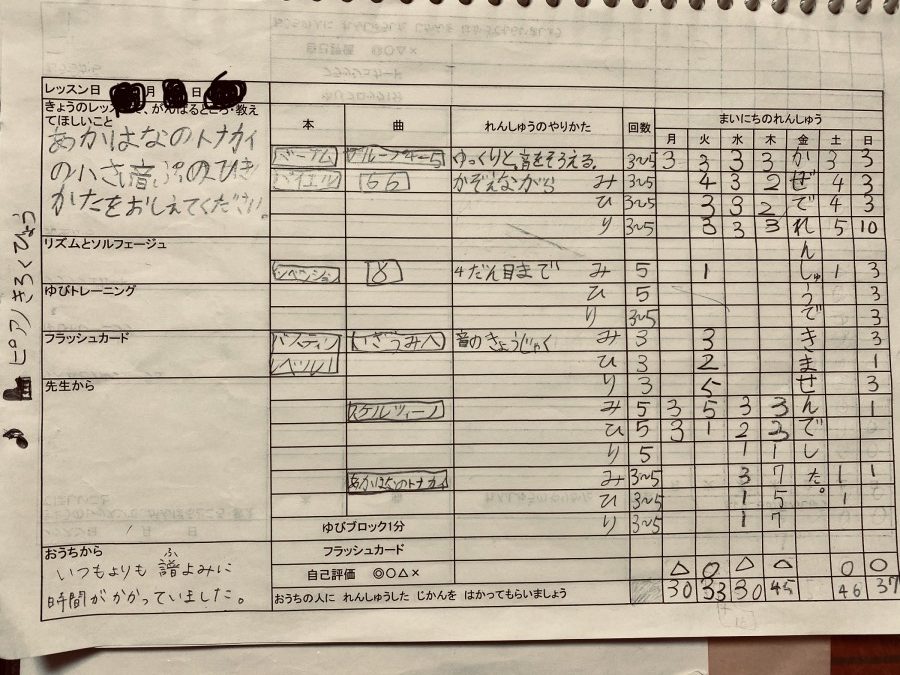 レッスン日 月 日
きょうのレッスンで、がんばるところ・教え
てほしいこと
あかはなのトナカイ
の小さい音ぷのひき
かたをおしえてください。
本 曲 れんしゅうのやりかた 回数 まいにちのれんしゅう
月 火 水 木 金 土 日
バーナム グループ4-5 ゆっくりと、音をそろえる。 3~5 3 3 3 3 か 3 3
バイエル 66 かぞえながら み 3~5 4 3 2 ぜ 4 3
ひ 3~5 3 3 2 で 4 3
り 3~5 3 3 3 れ 5 10
リズムとソルフェージュ ん
インベンション 8 4だん目まで み 5 1 しゅ 1 3
ゆびトレーニング ひ 5 う 3
り 3~5 で 3
フラッシュカード バスティン いざうみへ 音のきょうじゃく み 3 3 き 3
レベル1 ひ 3 2 ま 1
先生から り 3 5 せ 3
スケルツィーノ み 5 3 5 3 3 ん 1
ひ 5 3 1 2 3 で
り 5 1 1 し
あかはなのトナカイ み 3~5 3 7 た。 1 1
ひ 3~5 1 5 1
ゆびブロック1分 り 3~5 1 7
おうちから フラッシュカード
いつもよりも譜よみに
ふ
自己評価 ◎○△× △ ○ △ △ ○ ○
時間がかかっていました。
おうちの人に れんしゅうした じかんを はかってもらいましょう 30 33 30 45 46 37
ピアノきろくひょう